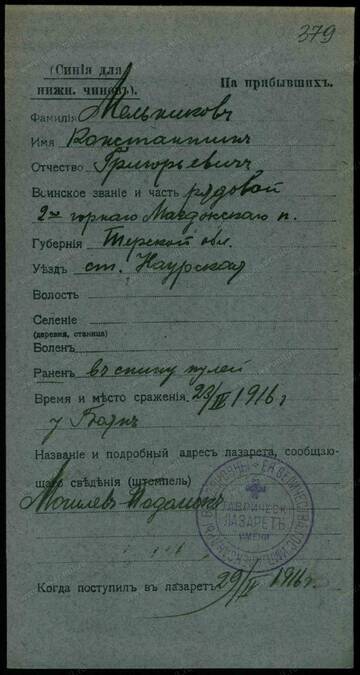 379
(Синія для
нижн. чиновъ).
На прибывшихъ.
Фамилія Мельниковъ
Имя Константинъ
Отчество Григорьевичъ
Воинское званіе и часть рядовой
2го горнаго п.
Губернія Терской обл.
Уѣздъ ст. Наурская
Волость
Селеніе
(деревня, станица)
Боленъ
Раненъ въ спину пулей
Время и мѣсто сраженія 23/IV 1916 г
у Боянъ
Названіе и подробный адресъ лазарета, сообщаю-
щаго свѣдѣнія (штемпель)
Могилев Подольск
ТАВРИЧЕСК
ЛАЗАРЕТЪ
ИМЕНИ
ЕЯ ВЕЛИЧЕСТВА
Когда поступилъ въ лазаретъ 29/IV 1916 г.